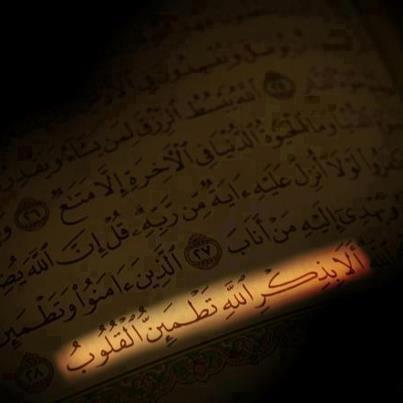 وَيُفْسِدُونَ فِى
٢٥ ٱللَّهُ يَبْسُطُ ٱلرِّزْقَ لِمَن يَشَآءُ وَيَقْدِرُ
وَمَا ٱلْحَيَوٰةُ ٱلدُّنْيَا فِى ٱلْءَاخِرَةِ إِلَّا مَتَٰعٌ ٢٦
كَفَرُوا۟ لَوْلَآ أُنزِلَ عَلَيْهِ ءَايَةٌ مِّن رَّبِّهِۦ قُلْ إِنَّ ٱللَّهَ
وَيَهْدِىٓ إِلَيْهِ مَنْ أَنَابَ ٢٧ ٱلَّذِينَ ءَامَنُوا۟ وَتَطْمَئِنُّ
أَلَا بِذِكْرِ ٱللَّهِ تَطْمَئِنُّ ٱلْقُلُوبُ ٢٨